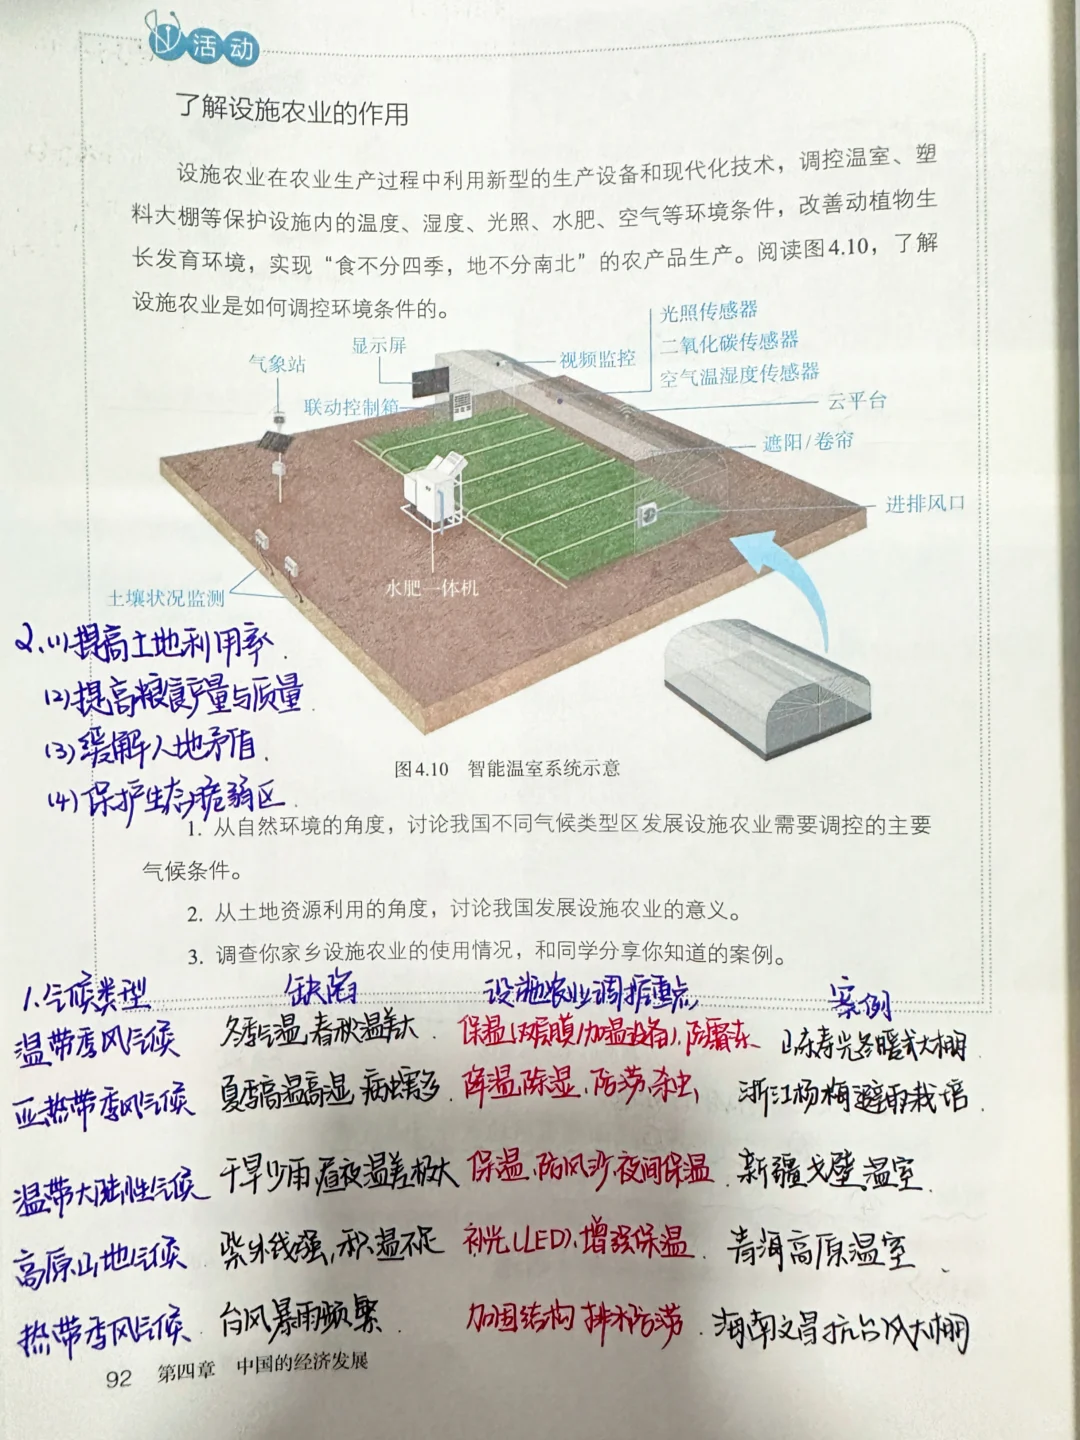 活动
了解设施农业的作用
设施农业在农业生产过程中利用新型的生产设备和现代化技术，调控温室、塑
料大棚等保护设施内的温度、湿度、光照、水肥、空气等环境条件，改善动植物生
长发育环境，实现“食不分四季，地不分南北”的农产品生产。阅读图4.10，了解
设施农业是如何调控环境条件的。
光照传感器
二氧化碳传感器
空气温湿度传感器
显示屏
视频监控
气象站
联动控制箱
云平台
遮阳/卷帘
进排风口
水肥一体机
土壤状况监测
2.(1)提高土地利用率.
(2)提高粮食产量与质量.
(3)缓解人地矛盾.
(4)保护生态脆弱区.
图4.10 智能温室系统示意
1. 从自然环境的角度，讨论我国不同气候类型区发展设施农业需要调控的主要
气候条件。
2. 从土地资源利用的角度，讨论我国发展设施农业的意义。
3. 调查你家乡设施农业的使用情况，和同学分享你知道的案例。
1.气候类型 缺陷 设施农业调控重点 案例
温带季风气候 冬季气温,春秋温差大 保温(双层膜/加温设备)、防霜冻 山东寿光冬暖式大棚
亚热带季风气候 夏季高温高湿,病虫害多. 降温,除湿、防涝.杀虫, 浙江杨梅避雨栽培.
温带大陆性气候 干旱少雨,昼夜温差极大 保温、防风沙、夜间保温 新疆戈壁温室.
高原山地气候 紫外线强,积温不足 补光(LED)、增强保温. 青海高原温室
热带季风气候 台风暴雨频繁. 加固结构 排水防涝. 海南文昌抗台风大棚
92 第四章 中国的经济发展